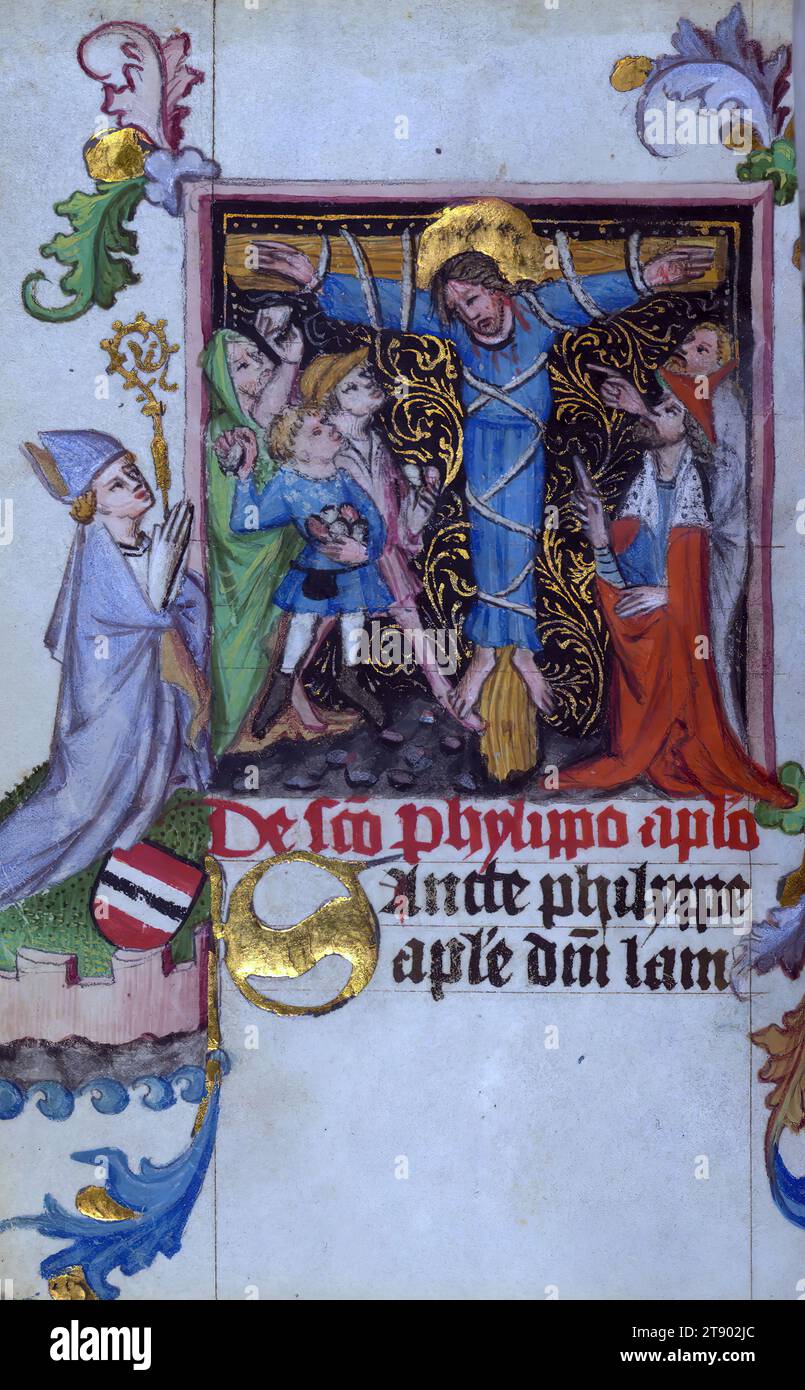 De sco phylippo aplo
Sancte philyppe
aple dm lam
alamy
Image ID: 2T902JC
www.alamy.com